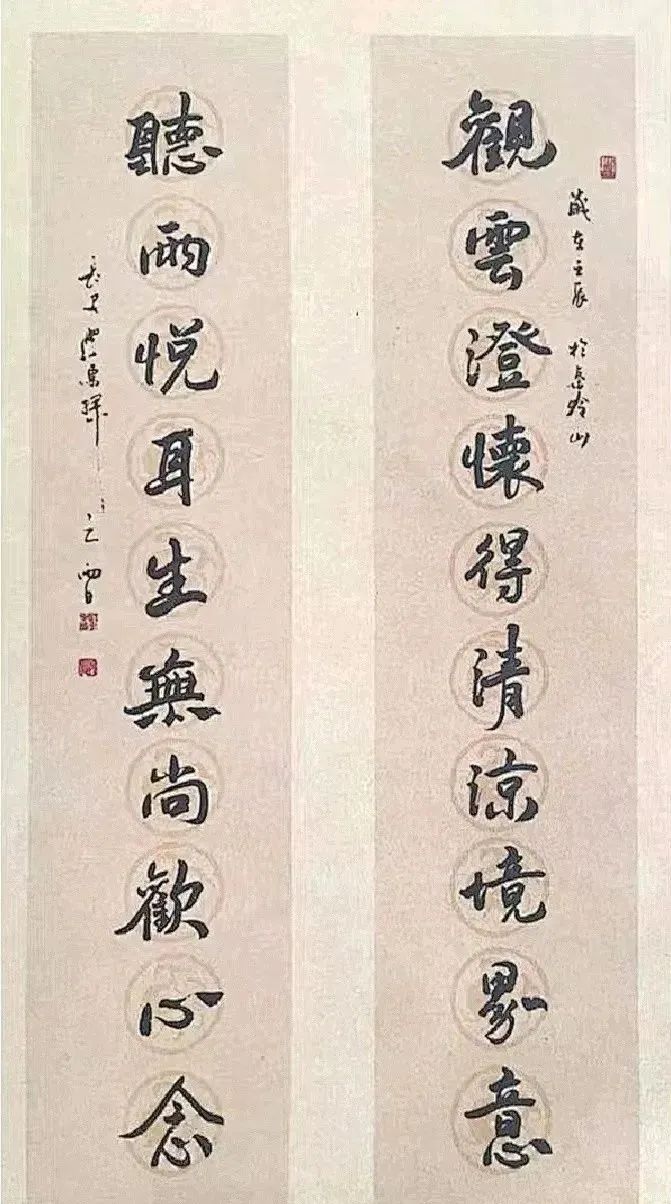 觀雲澄懷得清涼境界意
歲在壬辰 於
山
聽雨悦耳生無尚歡心念